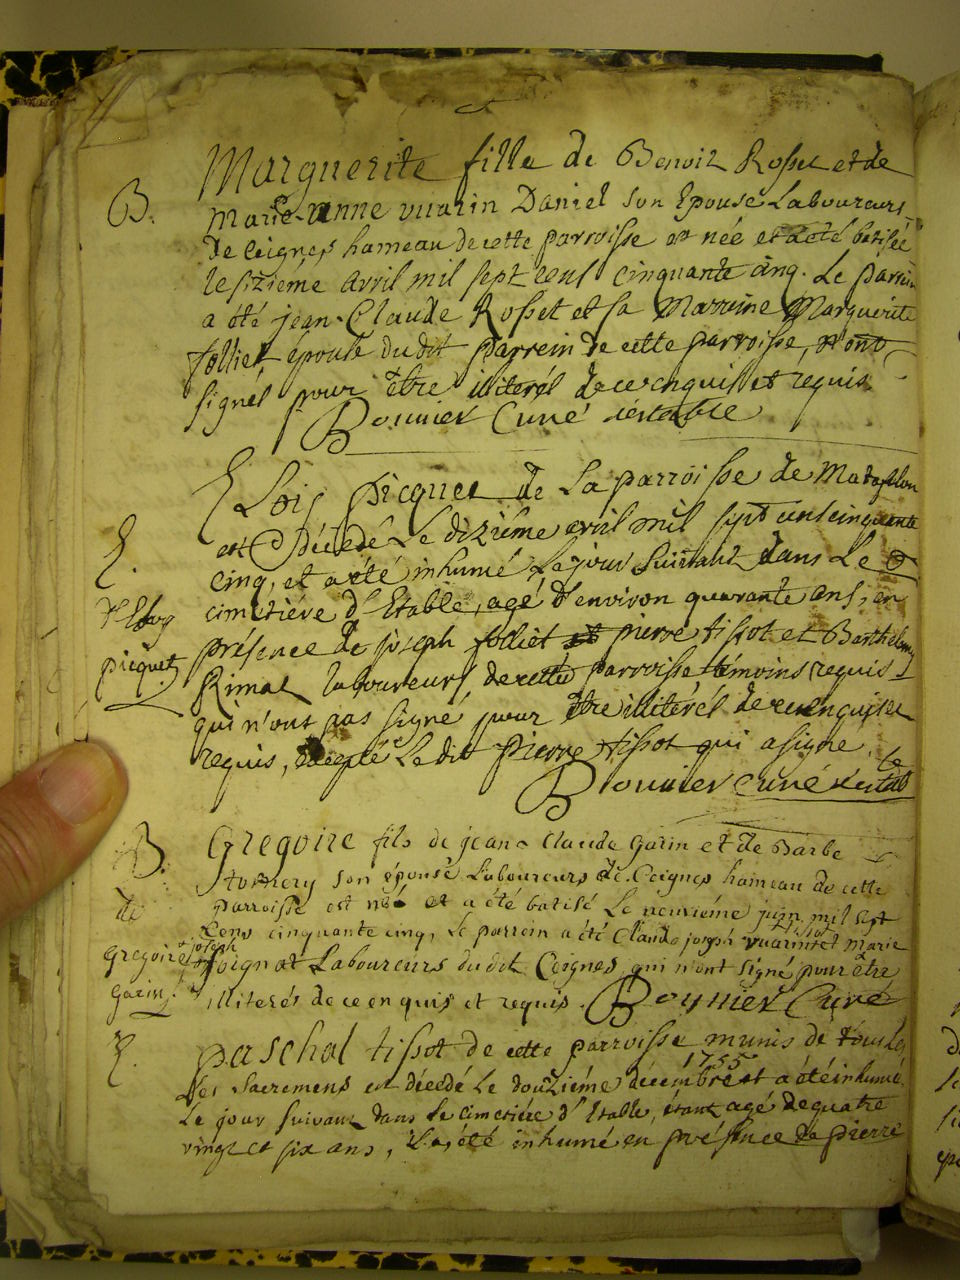 B.
Marguerite fille de Benoit Rosset et de
Marie-anne vuarin Daniel son Epouse Laboureurs
de Ceignes hameau de cette parroisse est née et a été batisée
le sizième avril mil sept cens cinquante cinq. Le parrin
a été jean-Claude Rosset et sa Marreine Marguerite
folliet épouse du dit parrein de cette parroisse, n'ont
signés pour être illiterés de ce enquis et requis.
Bonnier Curé
Elois picquet de La parroisse de Matafelon
E.
est Décedé Le dizième avril mil sept cens cinquante
cinq, et a été inhumé Le jour Suivant dans Le
d'Eloy
cimetière d'Etable, agé d'environ quarante ans, en
picquet
présence de joseph folliet pierre tissot et Barthelemy
Rimat laboureurs de cette parroisse témoins requis
qui n'ont pas signé pour être illiterés de ce enquis et
requis, excepté Le dit pierre tissot qui a signé.
Bonnier curé
B.
Gregoire fils de jean Claude Garin et de Barbe
son épouse Laboureurs de Ceignes hameau de cette
de
parroisse est né et a été batisé Le neuvième juin mil sept
Cens cinquante cinq, Le parrein a été Claude joseph vuarin tissot et marie
gregoire joseph
Laboureurs du dit Ceignes qui n'ont signé pour être
garin.
illiterés de ce enquis et requis. Bonnier Curé
E.
paschal tissot de cette parroisse munis de tous Les
1755
Ses Sacremens est décedé Le douzième décembre et a été inhumé
Le jour suivant dans Le cimetière d'Etable, étant agé de quatre
vingt et six ans, il a été inhumé en présence de pierre